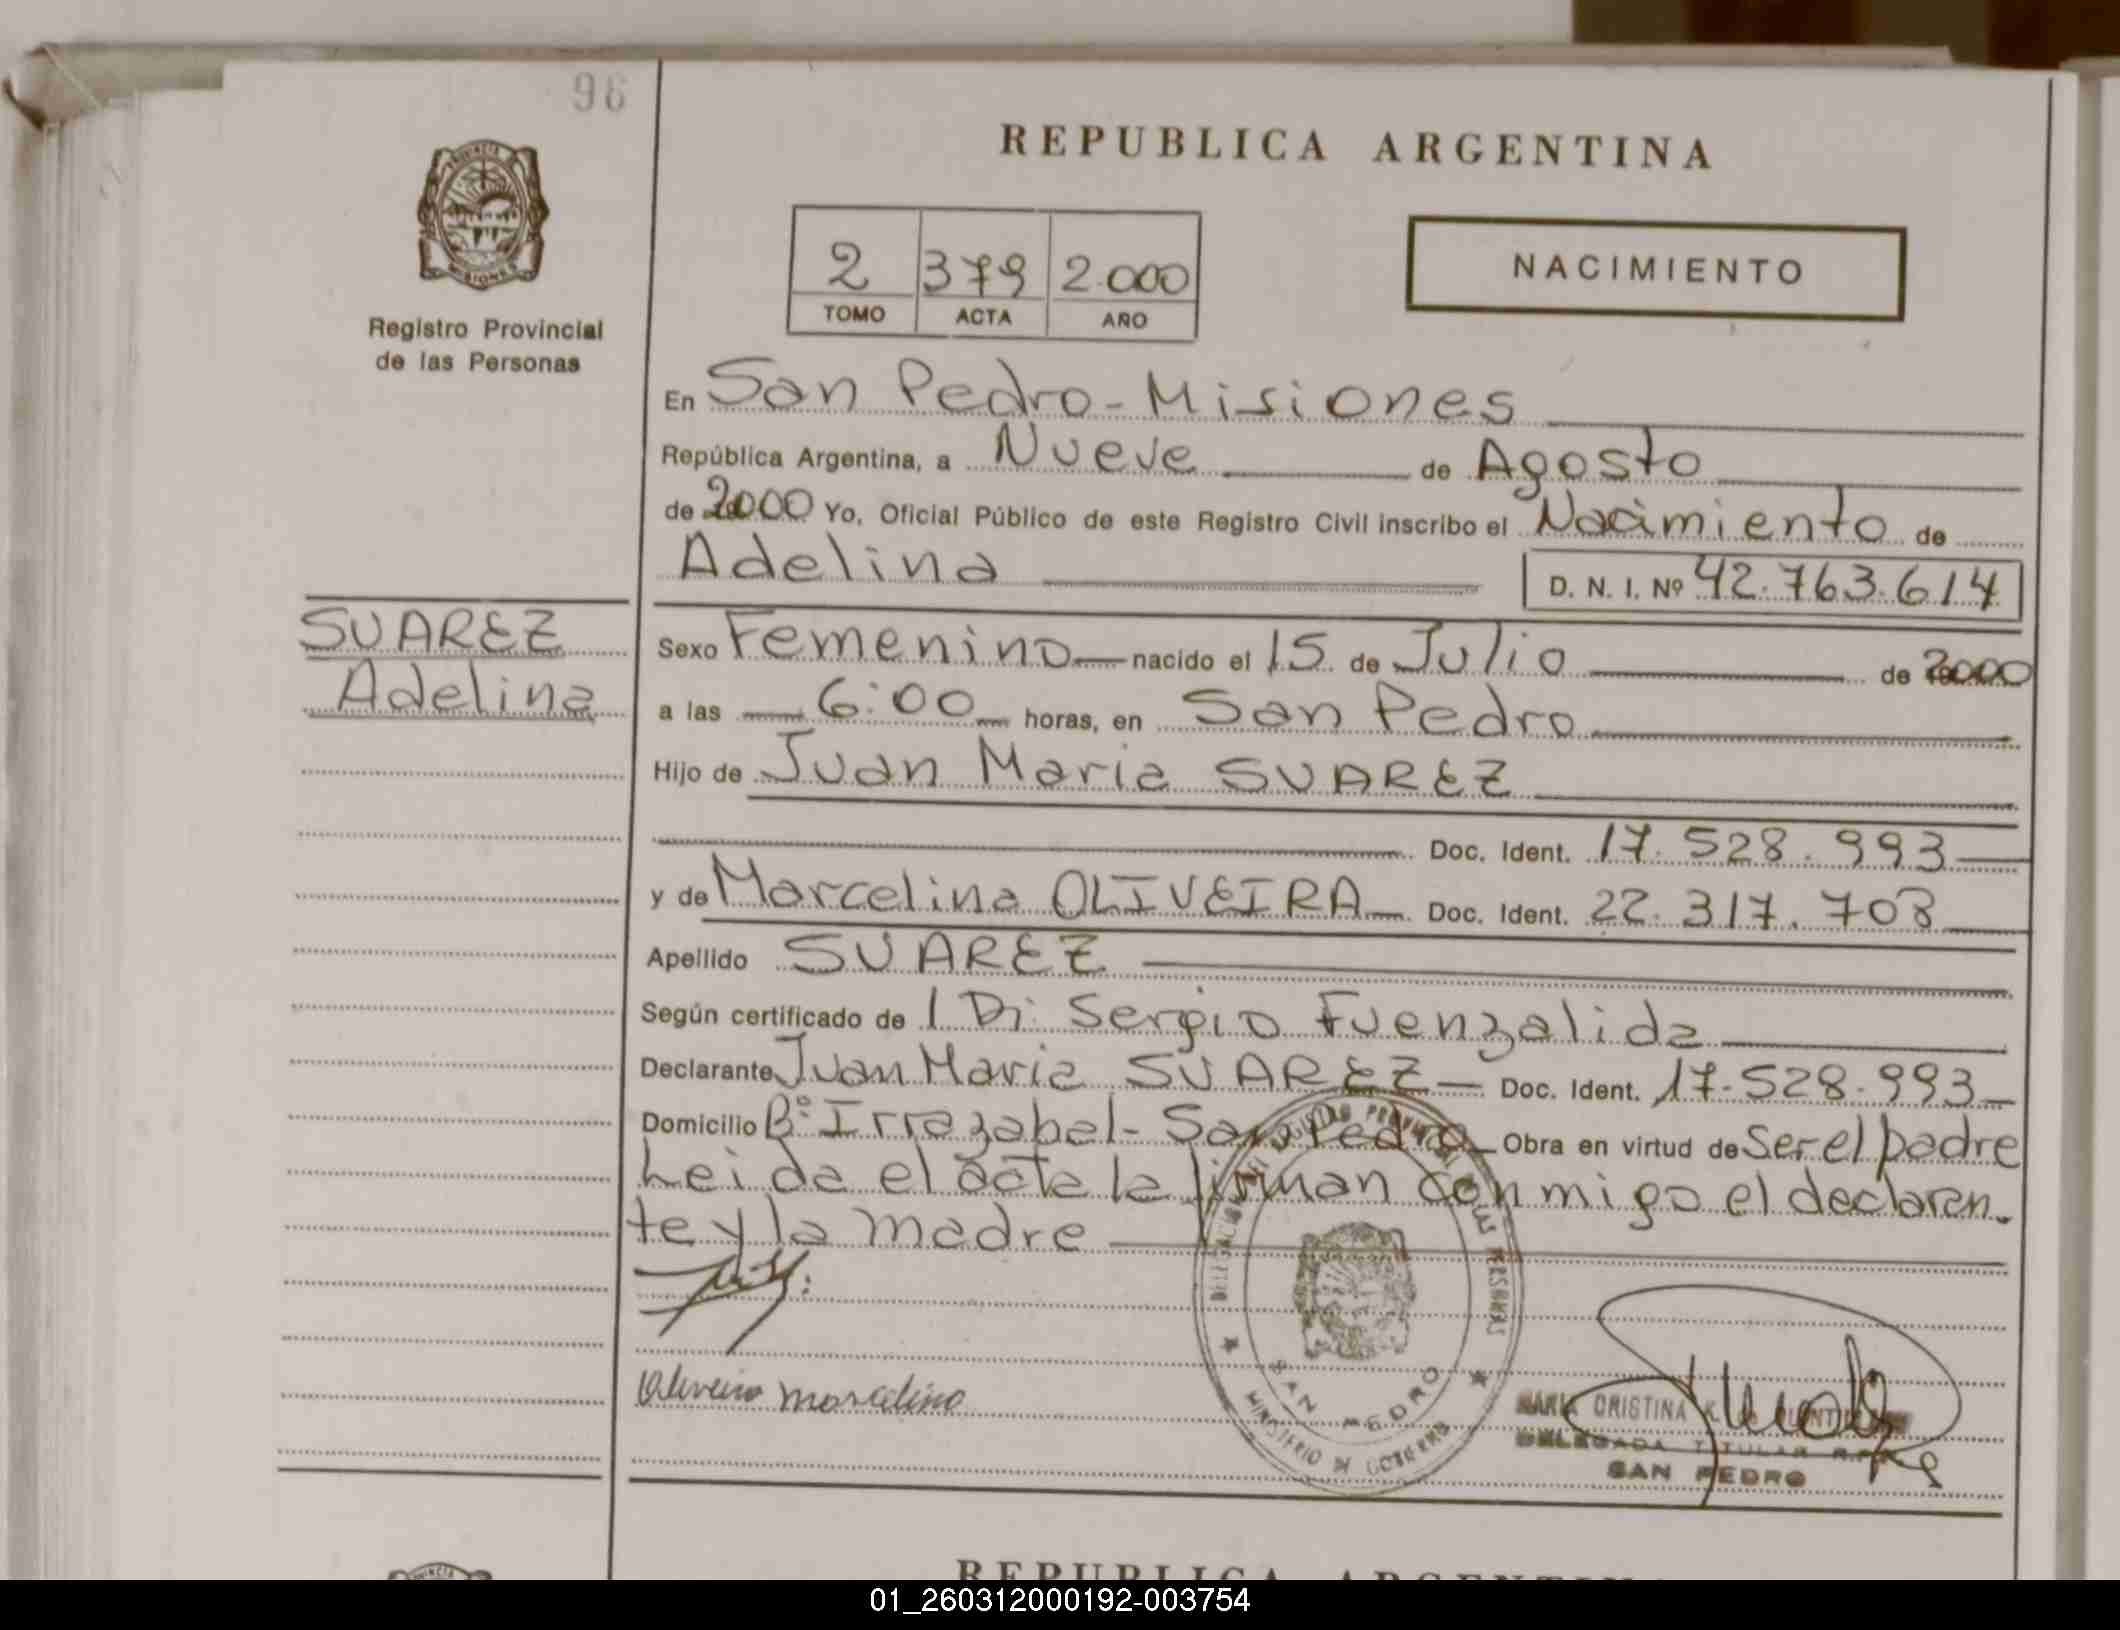 96
REPUBLICA ARGENTINA
PROVINCIA DE
MISIONES
Registro Provincial
de las Personas
2 379 2.000
TOMO ACTA AÑO
NACIMIENTO
En San Pedro - Misiones
República Argentina, a Nueve de Agosto
de 2000 Yo, Oficial Público de este Registro Civil inscribo el Nacimiento de
Adelina D. N. I. Nº 42.763.614
SUAREZ
Adelina
Sexo Femenino nacido el 15 de Julio de 2000
a las 6:00 horas, en San Pedro
Hijo de Juan Maria SUAREZ
Doc. Ident. 17.528.993
y de Marcelina OLIVEIRA Doc. Ident. 22.317.703
Apellido SUAREZ
Según certificado de 1 Dr. Sergio Fuenzalida
Declarante Juan Maria SUAREZ Doc. Ident. 17.528.993
Domicilio Bº Irrazabal - San Pedro Obra en virtud de Ser el padre
Leida el acta la firman conmigo el declaran-
te y la madre
Oliveira Marcelina
DELEGACION DEL REGISTRO PROVINCIAL DE LAS PERSONAS
SAN PEDRO
MINISTERIO DE GOBIERNO
MARIA CRISTINA K. de
DELEGADA TITULAR R.P.P.
SAN PEDRO
REPUBLICA ARGENTINA
01_260312000192-003754